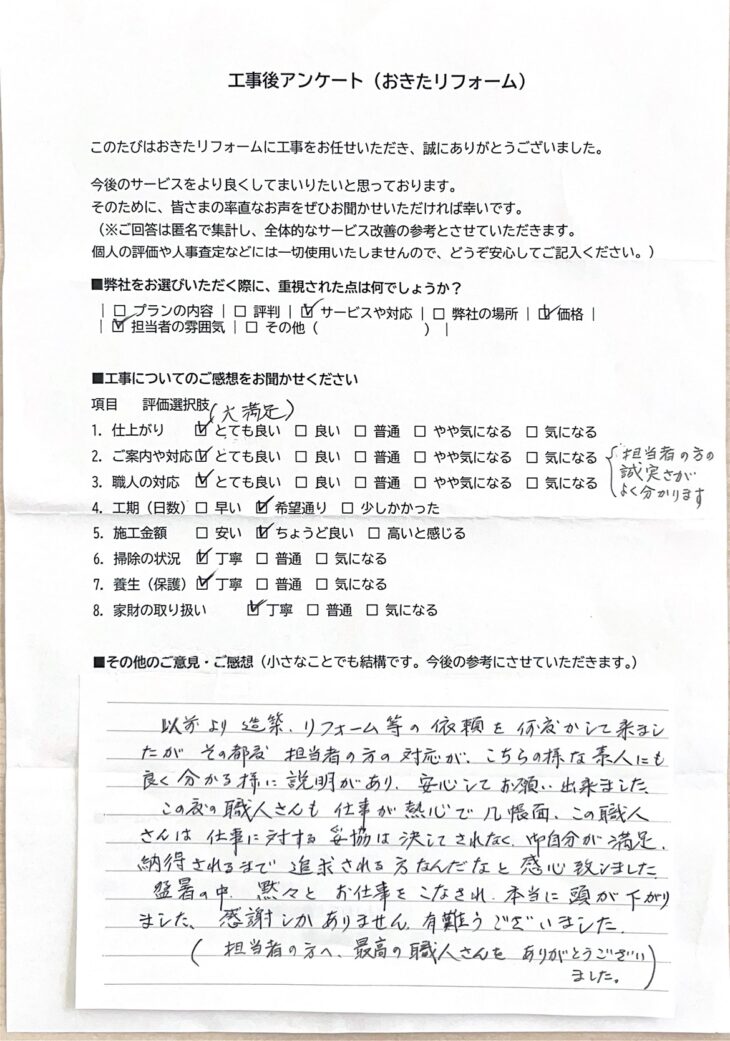 工事後アンケート（おきたリフォーム）
このたびはおきたリフォームに工事をお任せいただき、誠にありがとうございました。
今後のサービスをより良くしてまいりたいと思っております。
そのために、皆さまの率直なお声をぜひお聞かせいただければ幸いです。
（※ご回答は匿名で集計し、全体的なサービス改善の参考とさせていただきます。
個人の評価や人事査定などには一切使用いたしませんので、どうぞ安心してご記入ください。）
■弊社をお選びいただく際に、重視された点は何でしょうか？
| □ プランの内容 | □ 評判 | ☑ サービスや対応 | □ 弊社の場所 | ☑ 価格 |
| ☑ 担当者の雰囲気 | □ その他（ ） |
■工事についてのご感想をお聞かせください
項目 評価選択肢
（大満足）
1. 仕上がり ☑ とても良い □ 良い □ 普通 □ やや気になる □ 気になる
2. ご案内や対応 ☑ とても良い □ 良い □ 普通 □ やや気になる □ 気になる
3. 職人の対応 ☑ とても良い □ 良い □ 普通 □ やや気になる □ 気になる
担当者の方の
誠実さが
よく分かります
4. 工期（日数） □ 早い ☑ 希望通り □ 少しかかった
5. 施工金額 □ 安い ☑ ちょうど良い □ 高いと感じる
6. 掃除の状況 ☑ 丁寧 □ 普通 □ 気になる
7. 養生（保護） ☑ 丁寧 □ 普通 □ 気になる
8. 家財の取り扱い ☑ 丁寧 □ 普通 □ 気になる
■その他のご意見・ご感想（小さなことでも結構です。今後の参考にさせていただきます。）
以前より造築、リフォーム等の依頼を何度かして来まし
たがその都度 担当者の方の対応が、こちらの様な素人にも
良く分かる様に説明があり、安心してお願い出来ました。
この度の職人さんも仕事が熱心で几帳面、この職人
さんは仕事に対する妥協は決してされなく、御自分が満足、
納得されるまで追求される方なんだなと感心致しました
猛暑の中、黙々とお仕事をこなされ、本当に頭が下がり
ました。感謝しかありません。有難うございました。
（担当者の方へ、最高の職人さんをありがとうござい
ました。）